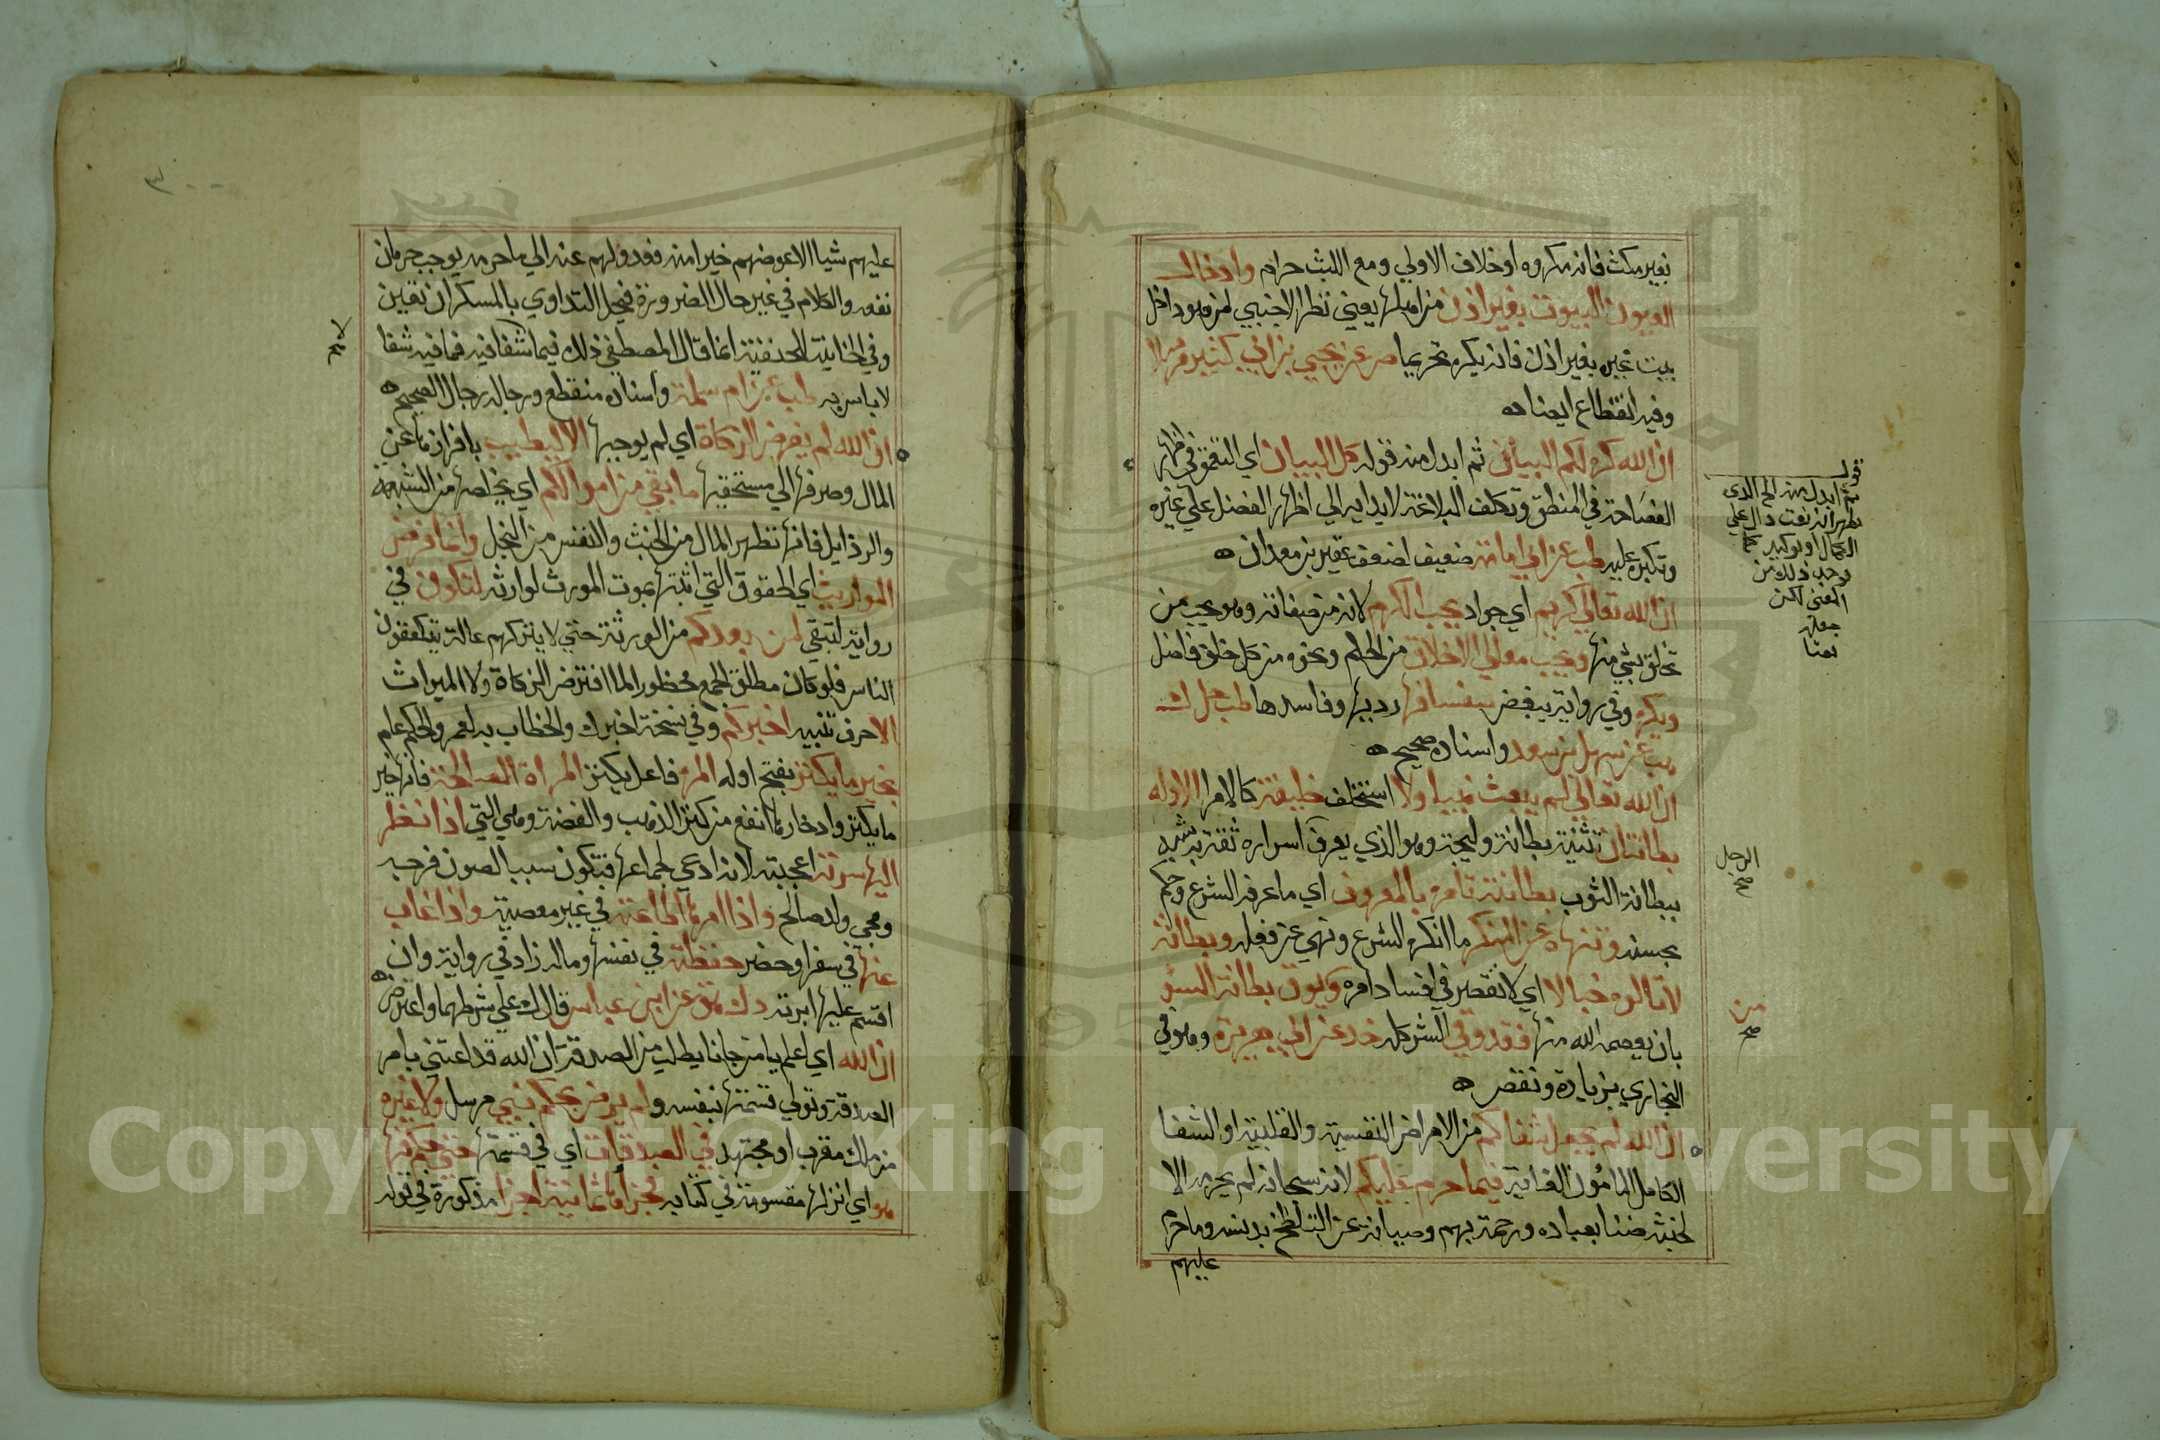 بغير مكث فانه مكروه او خلاف الاولي ومع اللبث حرام وادخال
العيون البيوت بغير اذن من اهلها يعني نظر الاجنبي لمن هو داخل
بيت غيره بغير اذن فانه يكره تحريما ص عن يحيي بن ابي كثير مرسلا
وفيه انقطاع ايضا ه
ان الله كره لكم البيان ثم ابدل منه قوله كل البيان اي التعمق في اظهار
الفصاحة في المنطق وتكلف البلاغة لادايه الي اظهار الفضل علي غيره
وتكبره عليه طب عن ابي امامة ضعيف لضعف عفير بن معدان ه
ان الله تعالي كريم اي جواد يحب الكرم لانه من صفاته وهو يحب من
تخلق بشي منها ويحب معالي الاخلاق من الحلم ونحوه من كل خلق فاضل
ويكره وفي رواية يبغض سفسافها رديها وفاسدها طب حل ك
هب عن سهل بن سعد واسناده صحيح ه
ان الله تعالي لم يبعث نبيا ولا استخلف خليفة كالامرا الا وله
بطانتان تثنية بطانة وليجة وهو الذي يعرف اسراره ثقة به شبه
ببطانة الثوب بطانة تامره بالمعروف اي ما عرفه الشرع وحكم
بحسنه وتنهاه عن المنكر ما انكره الشرع ونهي عن فعله وبطانة
لا تالوه خبالا اي لا تقصر في افساد امره ويوق بطانة السؤ
بان يعصمه الله منها فقد وقي الشر كله خد عن ابي هريرة وهو في
البخاري بزيادة ونقص ه
ان الله لم يجعل شفاكم من الامراض النفسية والقلبية او الشفا
الكامل المامون الغايلة فيما حرم عليكم لانه سبحانه لم يحرمه الا
لخبثه ضنا بعباده ورحمة بهم وصيانة عن التلطخ بدنسه وما حرم
عليهم
قوله
ثم ابدل منه الخ الذي
يظهر انه نعت دال علي
الكمال او توكيد كما
وجد ذلك من
المعني لكن
جعله
نعتا
الرجل
صح
من
صح
عليهم شيا الا عوضهم خيرا منه فعدولهم عنه الي ما حرمه يوجب حرمان
نفعه والكلام في غير حال الضرورة فيحل التداوي بالمسكر ان تعين
وفي الخانية للحنفية انما قال المصطفي ذلك فيما شفا فيه فما فيه شفا
لا باس به طب عن ام سلمة واسناده منقطع ورجاله رجال الصحيح ه
ان الله لم يفرض الزكاة اي لم يوجبها الا ليطيب بافرازها عن
المال وصرفها الي مستحقيها ما بقي من اموالكم اي يخلصها من الشبهة
والرذايل فانها تطهر المال من الخبث والنفس من البخل وانما فرض
المواريث اي الحقوق التي اثبتها بموت المورث لوارثه لتكون في
رواية لتبقي لمن بعدكم من الورثة حتي لا يتركهم عالة يتكففون
الناس فلو كان مطلق الجمع محظورا لما افترض الزكاة ولا الميراث
الا حرف تنبيه اخبركم وفي نسخة اخبرك والخطاب به لعمر والحكم عام
بخير ما يكنز بفتح اوله المرء فاعل يكنز المراة الصالحة فانها خير
ما يكنز وادخارها انفع من كنز الذهب والفضة وهي التي اذا نظر
اليها سرته اعجبته لانه ادعي لجماعها فتكون سببا لصون فرجه
ومجي ولد صالح واذا امرها اطاعته في غير معصية واذا غاب
عنها في سفر او حضر حفظته في نفسها وماله زاد في رواية وان
اقسم عليها ابرته د ك هق عن ابن عباس قال ك علي شرطهما واعترض ه
ان الله اي اعلم يا من جانا يطلب من الصدقة ان الله قد اعتني بامر
الصدقة وتولي قسمتها بنفسه ولم يرض بحكم نبي مرسل ولا غيره
من ملك مقرب او مجتهد في الصدقات اي في قسمتها حتي حكم فيها
هو اي انزلها مقسومة في كتابه فجزاها ثمانية اجزا مذكورة في قوله
لا
صح